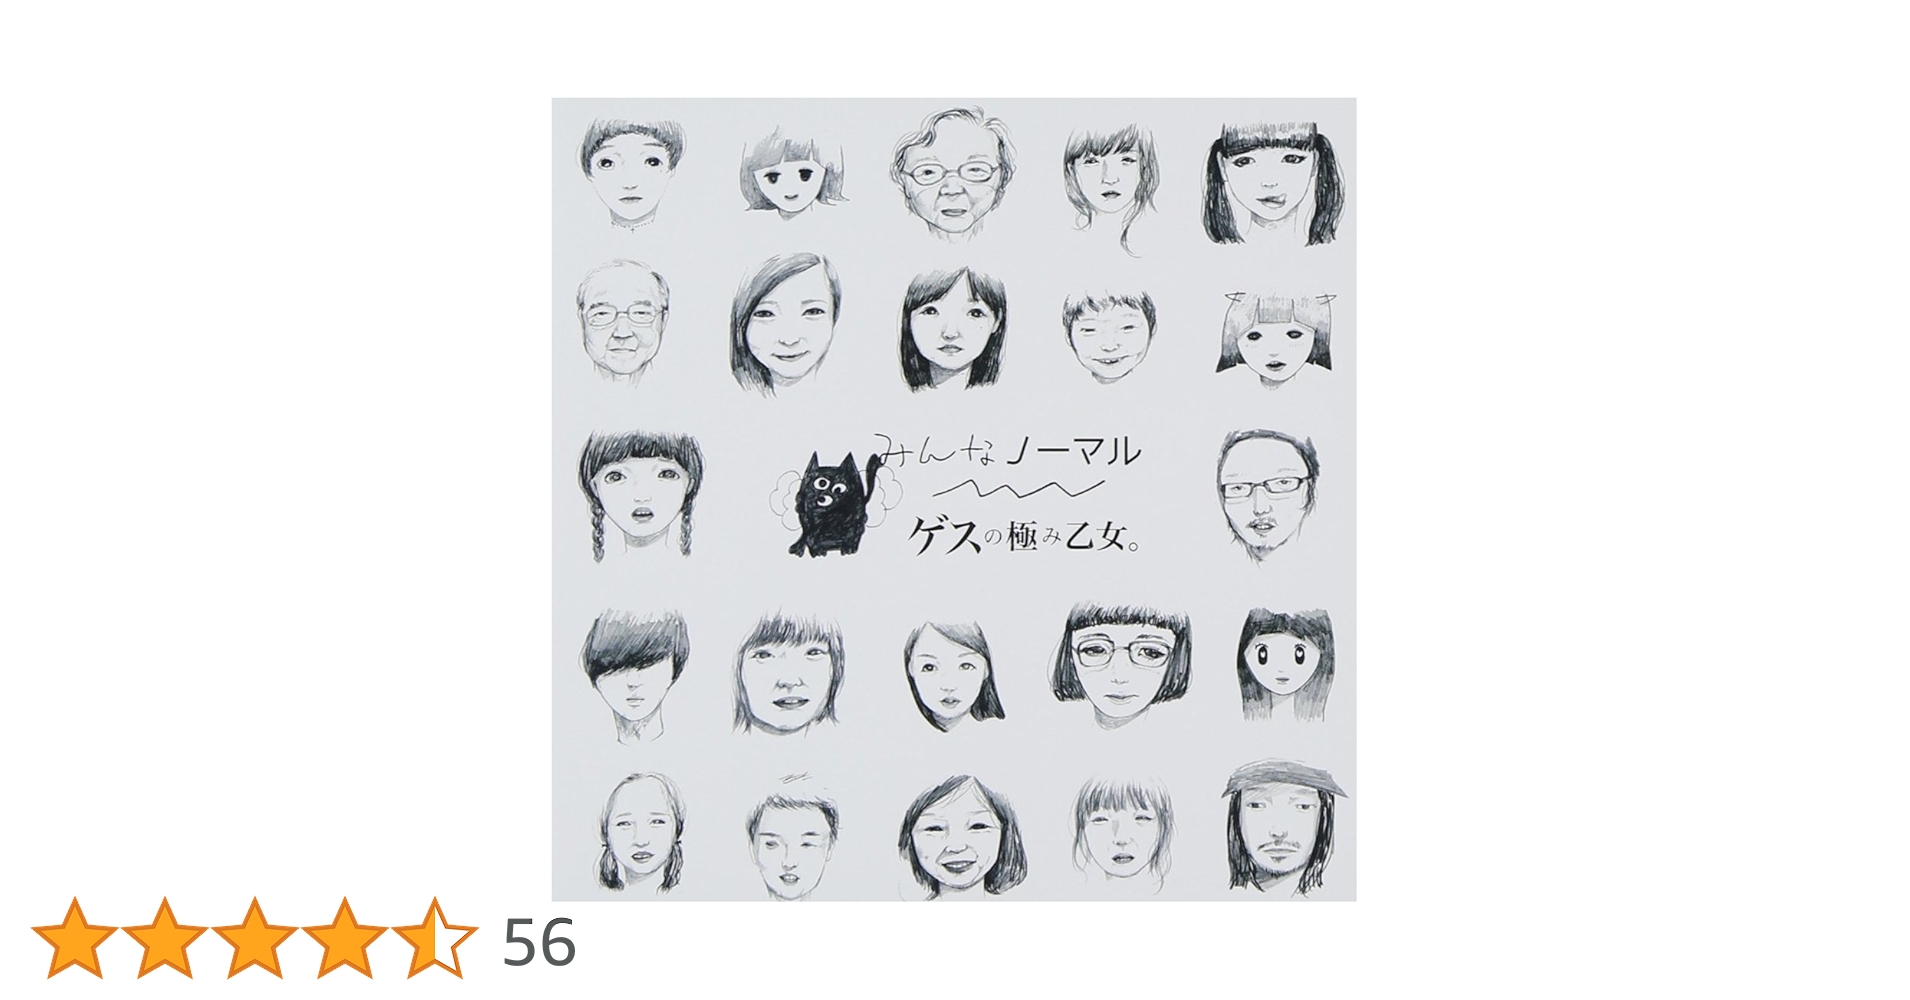 みんなノーマル
ゲスの極み乙女。
56